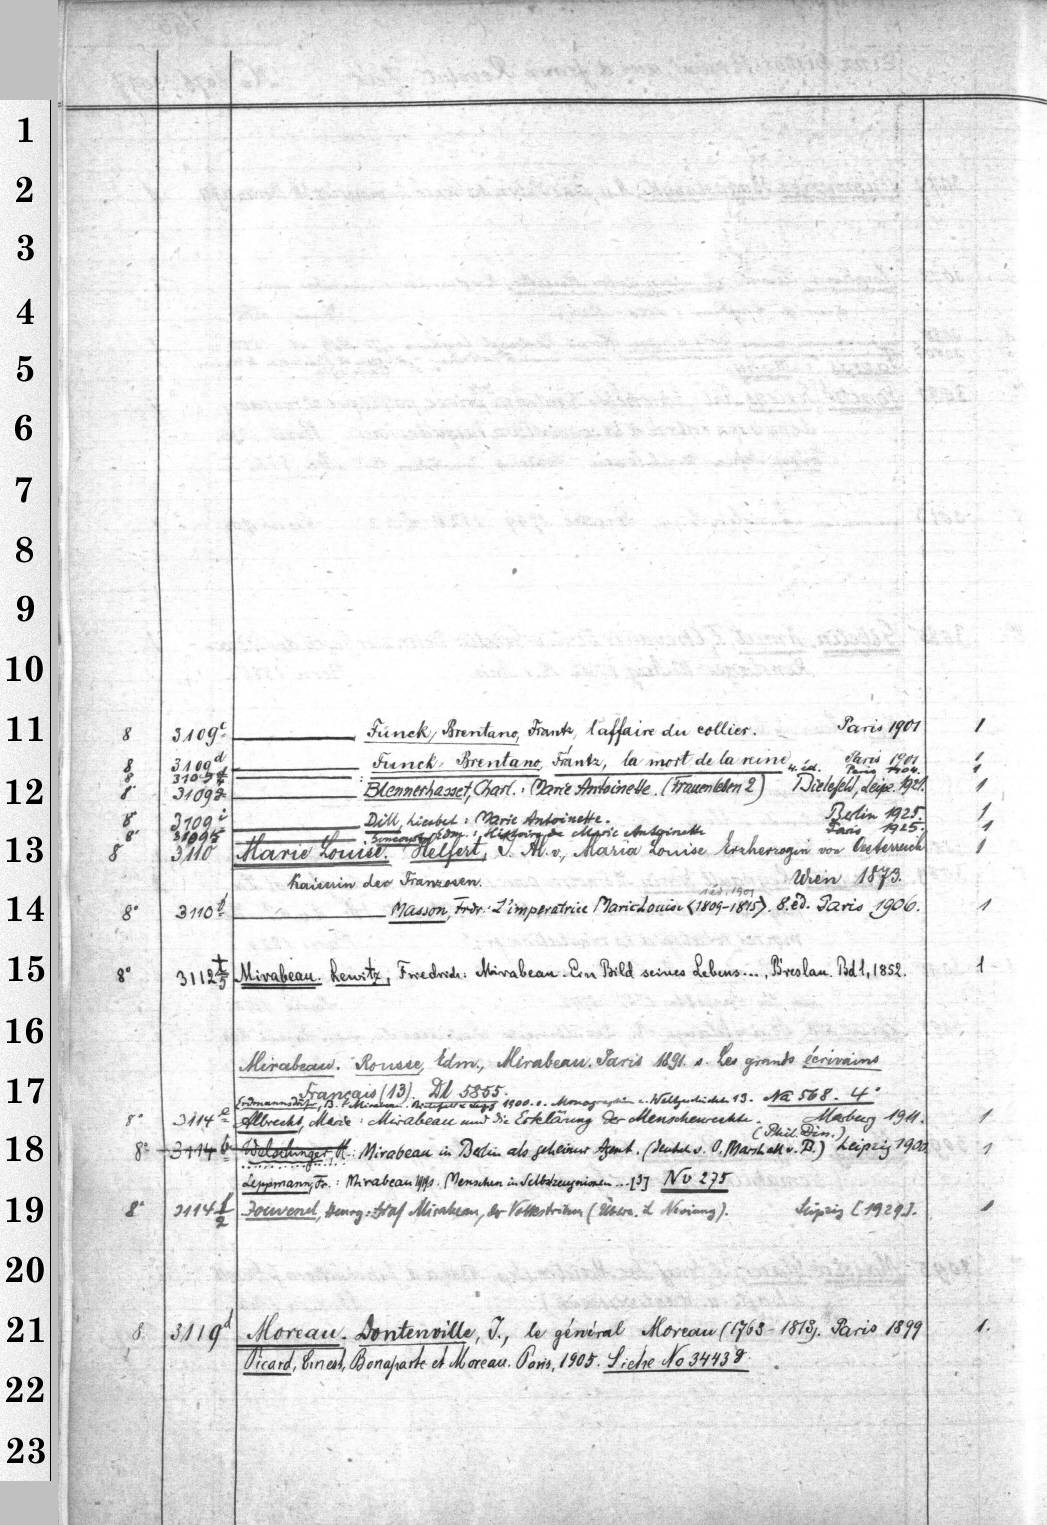 1
2
3
4
5
6
7
8
9
10
11
12
13
14
15
16
17
18
19
20
21
22
23
8 3109c Funck, Brentano, Frantz, l'affaire du collier. Paris 1901 1
8 3109d Funck-Brentano, Frantz, la mort de la reine. Paris 1901 1
8 4. éd. Paris 1904. 1
8° 3109g Blennerhasset, Charl.: Marie Antoinette. (Frauenleben 2) Bielefeld, Leipz. 1921.
8° 3109i Dill, Liesbet: Marie Antoinette. Berlin 1925. 1
8° 3109k Edm.: Histoire de Marie Antoinette Paris 1925. 1
8° 3110 Marie Louise. Helfert, J. Al. v., Maria Louise Erzherzogin von Oesterreich 1
Kaiserin der Franzosen. Wien 1873.
1 éd. 1901
8° 3110 b Masson, Frdr.: L'imperatrice Marie Louise <1809-1815>. 8. éd. Paris 1906. 1
8° 3112 t/5 Mirabeau. Lewitz, Friedrich: Mirabeau. Ein Bild seines Lebens..., Breslau. Bd 1, 1852. 1
Mirabeau. Rousse, Edm., Mirabeau. Paris 1891. s. Les grands écrivains
Français (13). Dl 5855.
Erdmannsdörffer, B.: Mirabeau. Bielefeld u. Leipz 1900. s. Monographien z. Weltgeschichte 13. Na 568. 4°
8° 3114 a Albrecht, Marie: Mirabeau und die Erklärung der Menschenrechte. Marburg 1911. 1
(Phil. Diss.)
8° 3114 b Welschinger, H.: Mirabeau in Berlin als geheimer Agent. (Deutsch v. O. Marschall v. B.) Leipzig 1900. 1
Leppmann, Fr.: Mirabeau (Menschen in Selbstzeugnissen ... [3] Nv 275
8° 3114 f/2 Jouvenel, Henry: Graf Mirabeau, der Volkstribun (Übers. L. ). Leipzig [1929]. 1
8 3119d Moreau. Dontenville, J., le général Moreau (1763-1813). Paris 1899 1.
Picard, Ernest, Bonaparte et Moreau. Paris, 1905. Siehe No 3443 g.